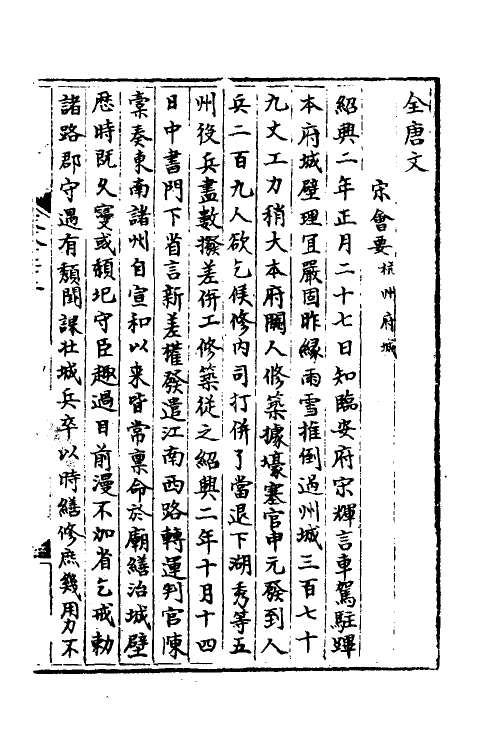 全唐文
宋會要 杭州府城
紹興二年正月二十七日知臨安府宋輝言車駕駐蹕
本府城壁理宜嚴固昨緣雨雪摧倒過州城三百七十
九丈工力稍大本府闕人修築據壕寨官申元發到人
兵二百九人欲乞候修內司打併了當退下湖秀等五
州役兵盡數撥差併工修築從之紹興二年十月十四
日中書門下省言新差權發遣江南西路轉運判官陳
槖奏東南諸州自宣和以来皆常稟命於廟繕治城壁
歷時旣久寖或頹圯守臣趣過目前漫不加省乞戒勅
諸路郡守遇有頹闕課壮城兵卒以時繕修庶幾用力不